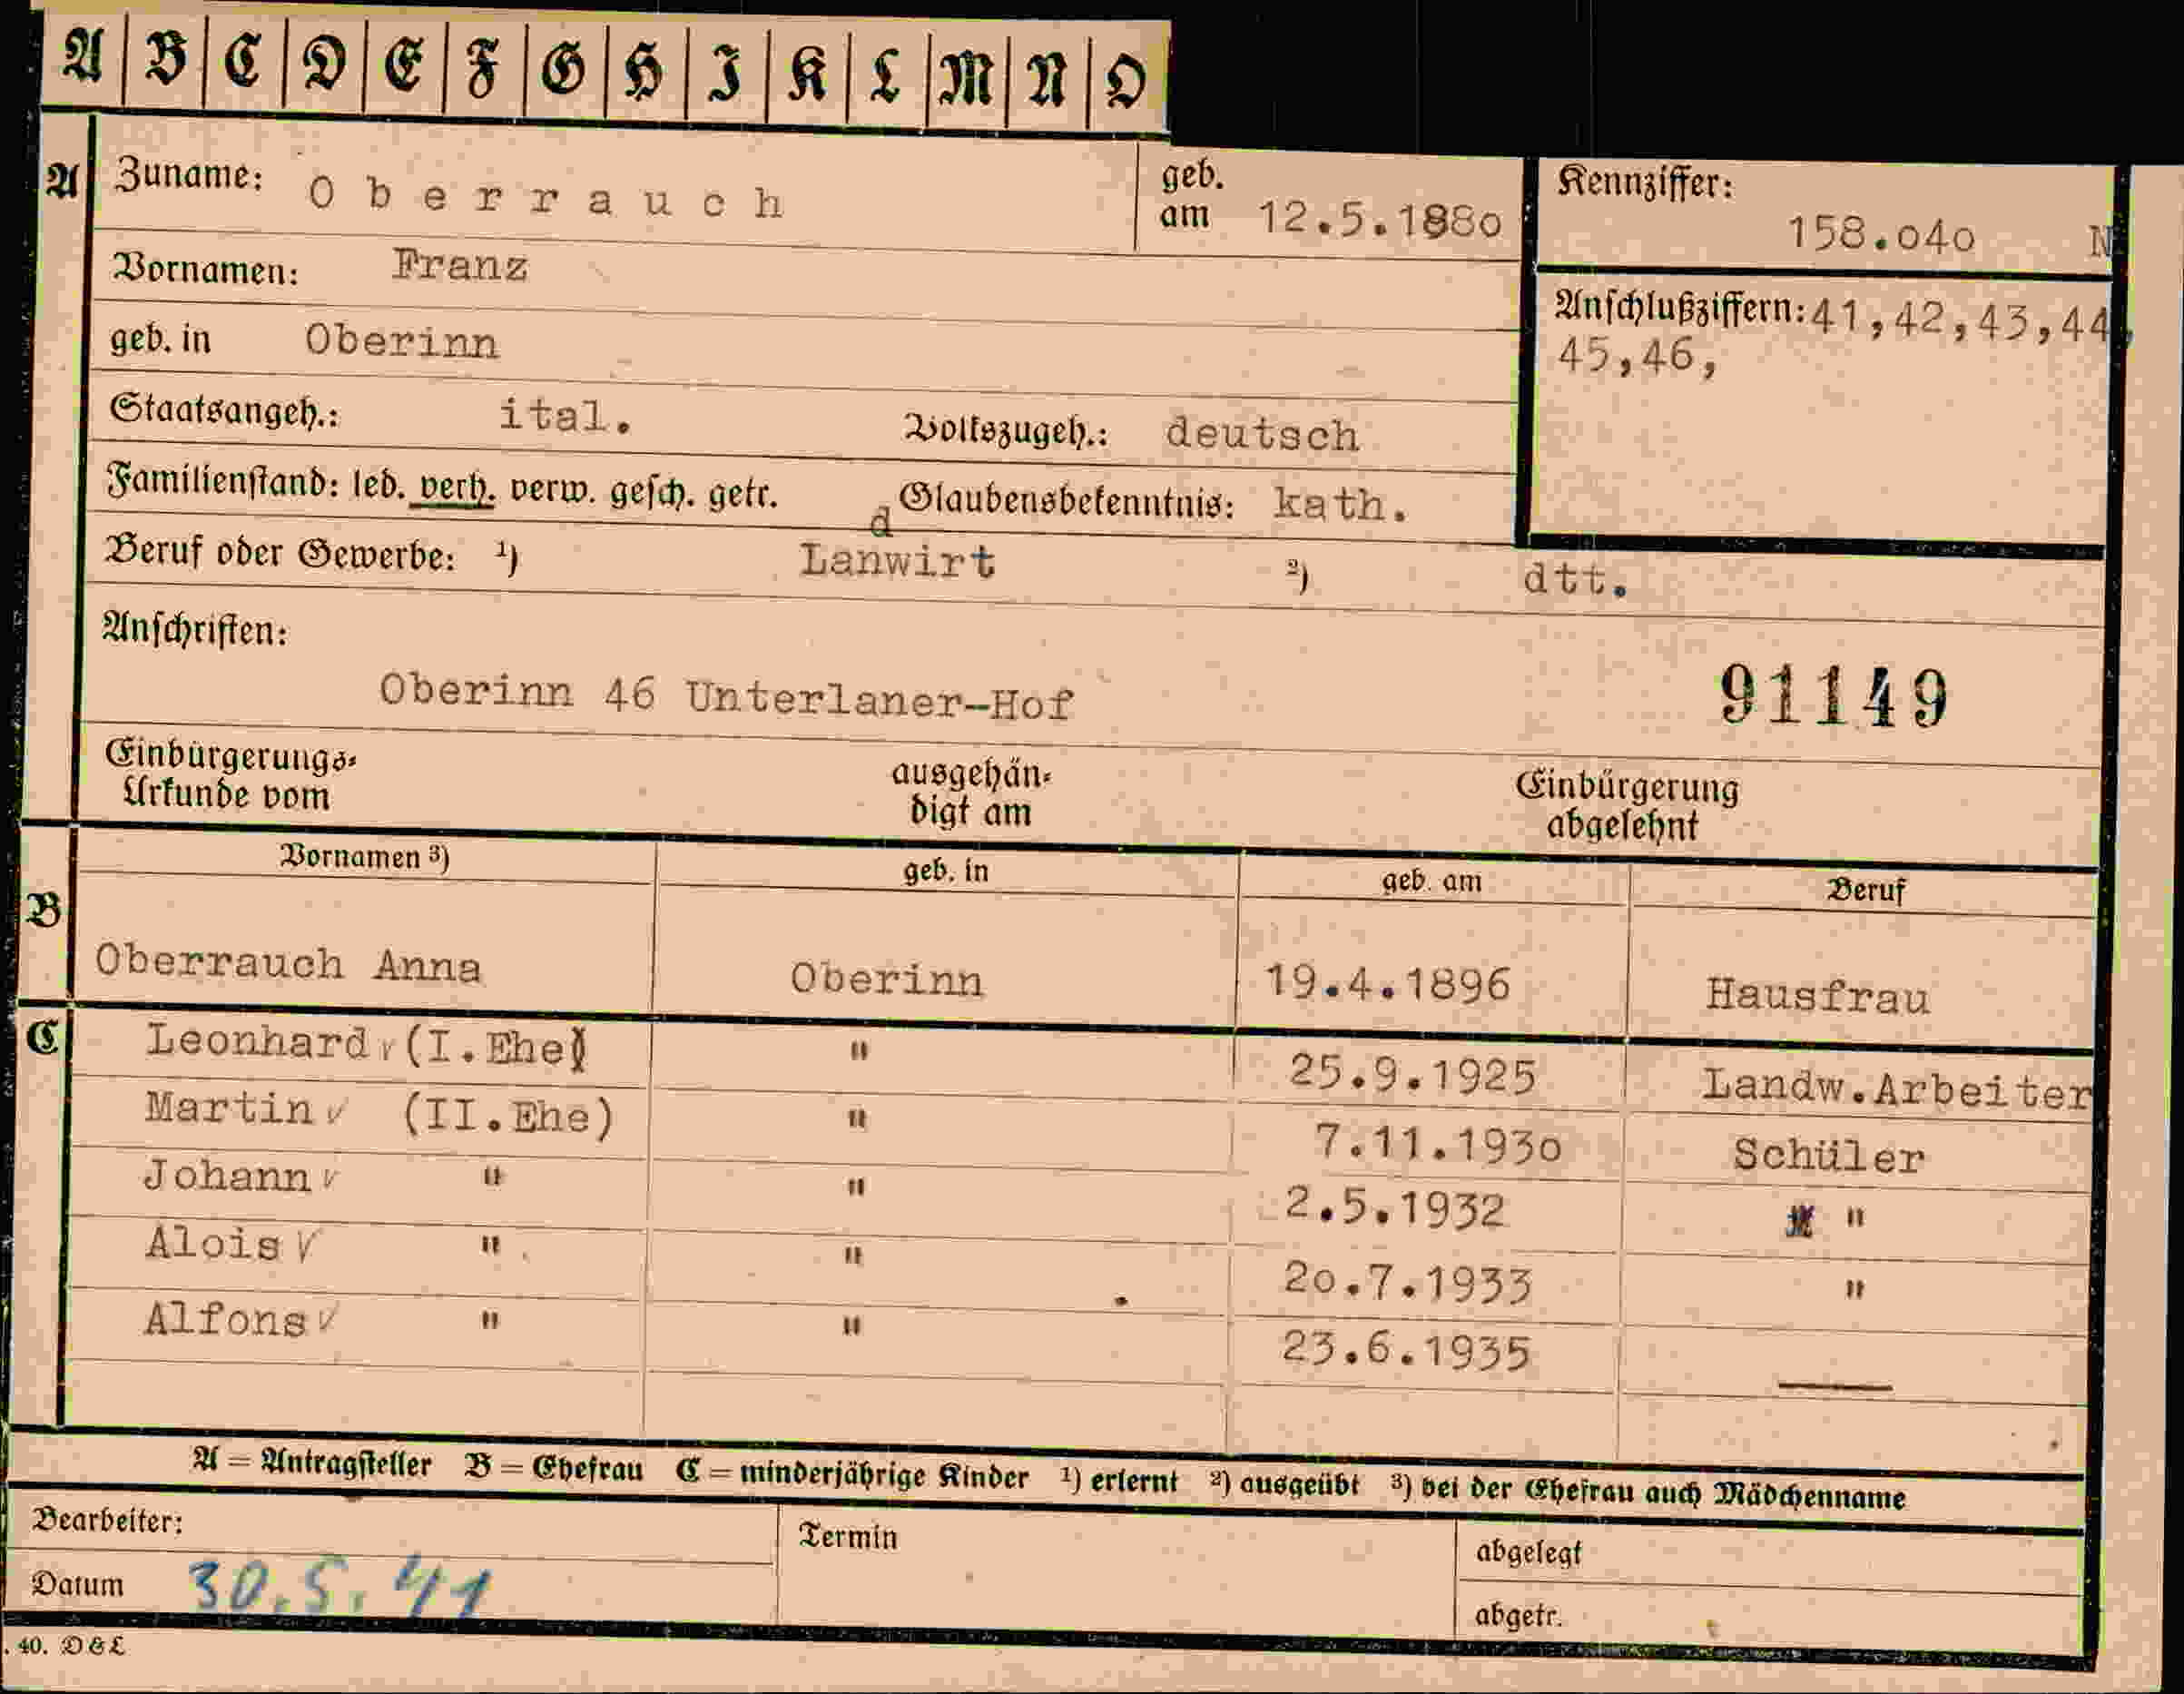 A B C D E F G H I K L M N O
A Zuname: Oberrauch geb. am 12.5.1880 Kennziffer: 158.040 N
Vornamen: Franz
Anschlußziffern: 41,42,43,44,
45,46,
geb. in Oberinn
Staatsangeh.: ital. Volkszugeh.: deutsch
Familienstand: led. verh. verw. gesch. getr. Glaubensbekenntnis: kath.
d
Beruf oder Gewerbe: 1) Lanwirt 2) dtt.
Anschriften:
Oberinn 46 Unterlaner-Hof 91149
Einbürgerungs-Urkunde vom ausgehän-digt am Einbürgerung abgelehnt
Vornamen 3) geb. in geb. am Beruf
B
Oberrauch Anna Oberinn 19.4.1896 Hausfrau
C Leonhard √ (I.Ehe) " 25.9.1925 Landw.Arbeiter
Martin √ (II.Ehe) " 7.11.1930 Schüler
Johann √ " " 2.5.1932 "
Alois √ " " 20.7.1933 "
Alfons √ " " 23.6.1935 —
A = Antragsteller B = Ehefrau C = minderjährige Kinder 1) erlernt 2) ausgeübt 3) bei der Ehefrau auch Mädchenname
Bearbeiter: Termin abgelegt
Datum 30.5.41 abgetr.
. 40. D&L